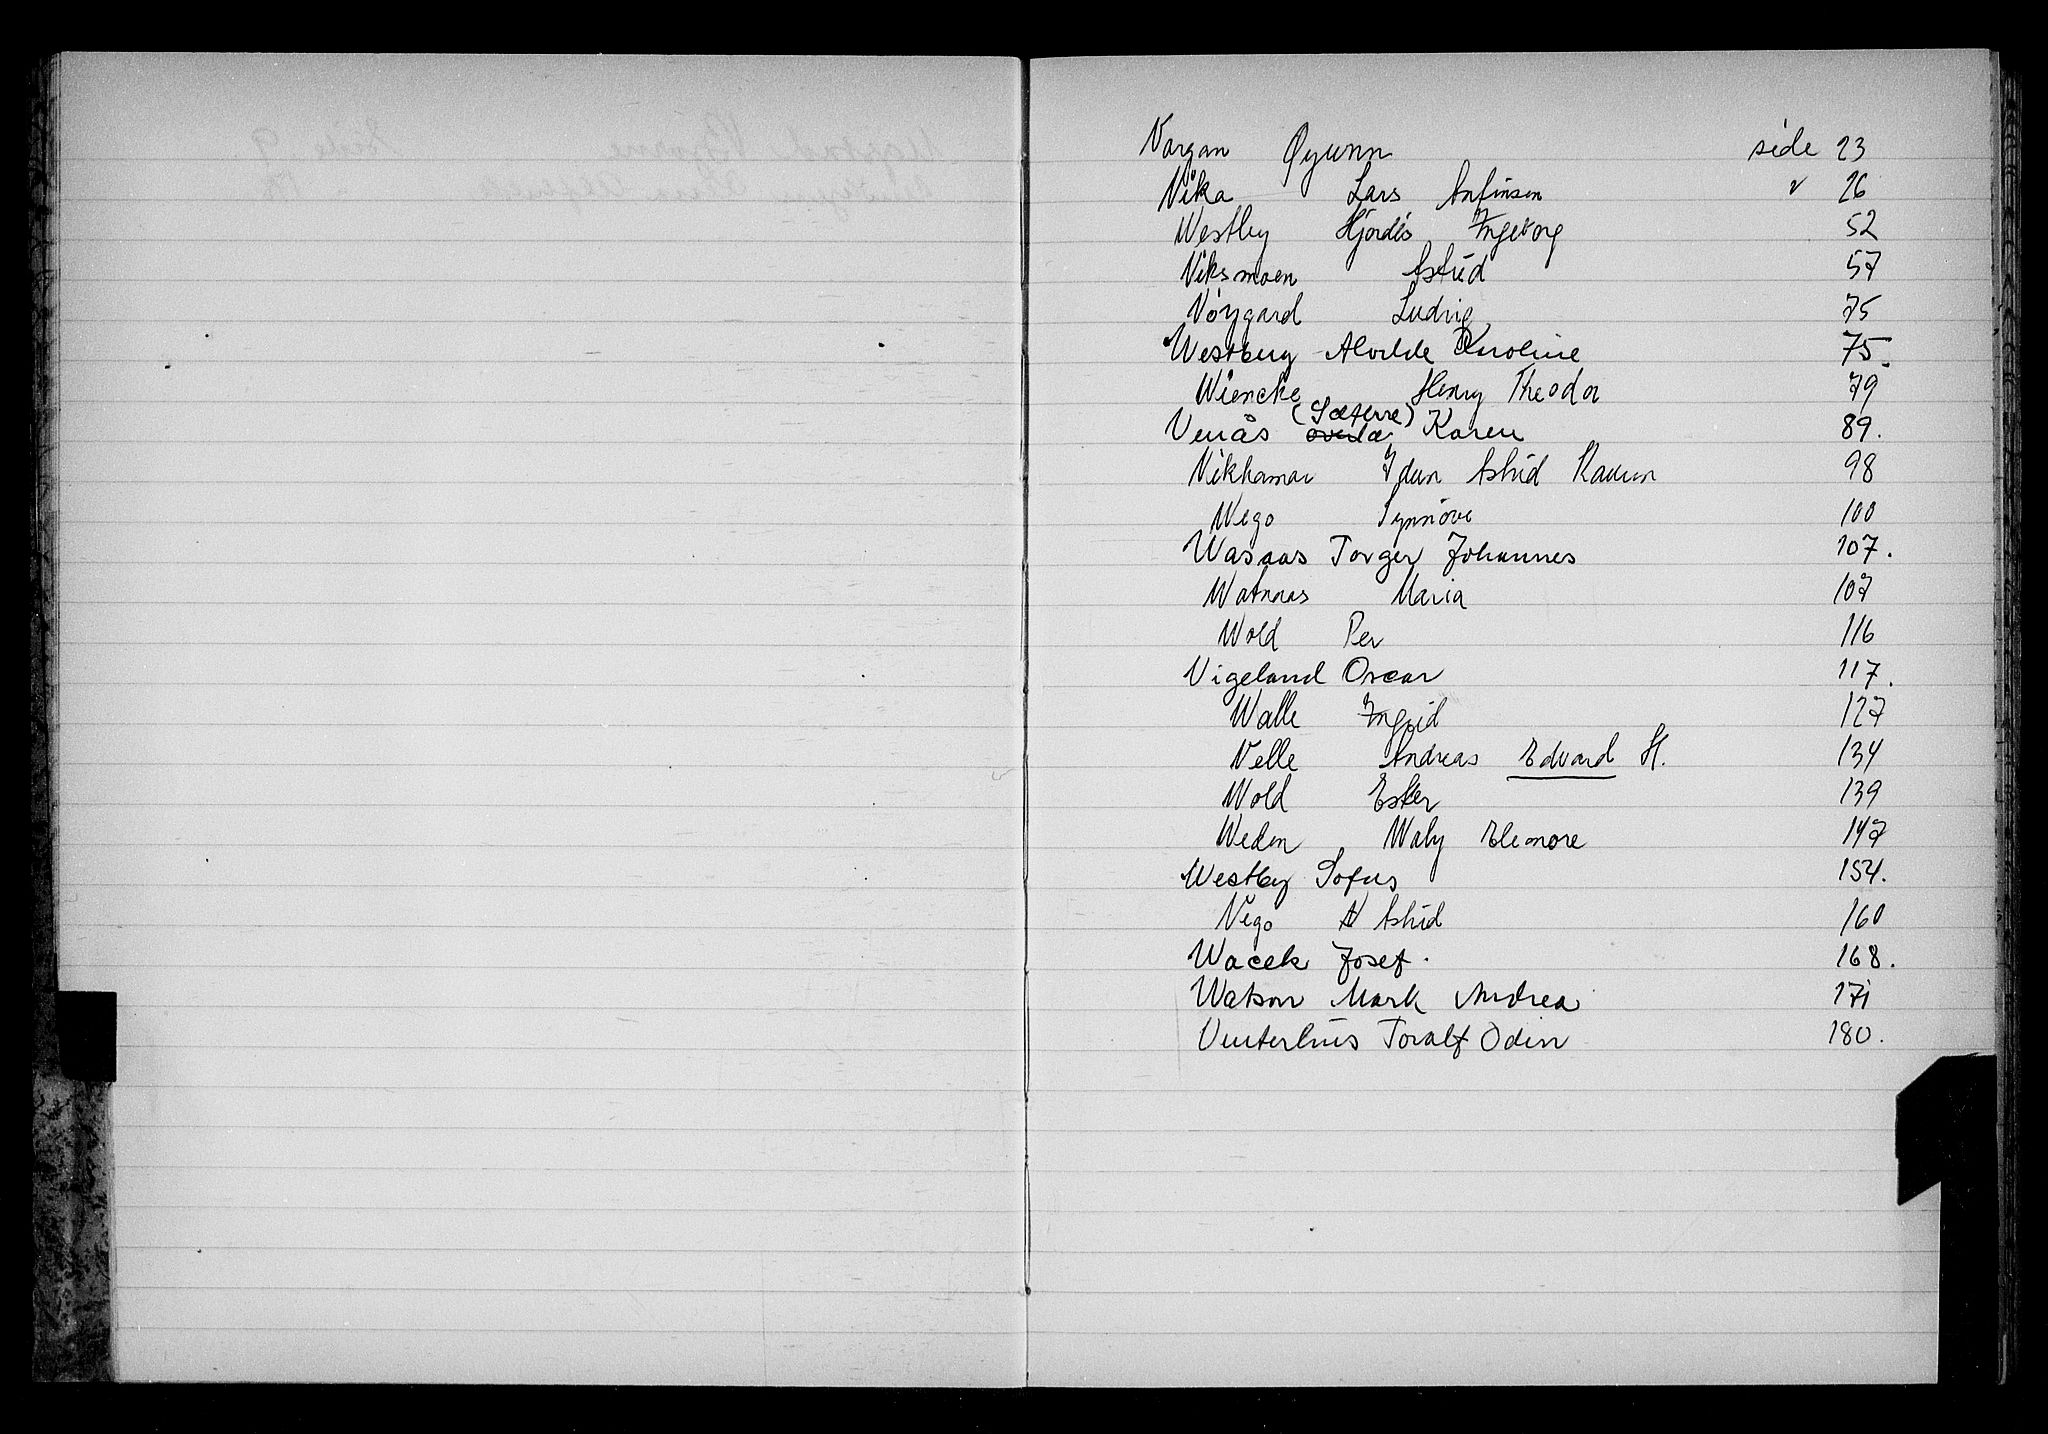 Vargan Øyunn side 23
Vika Lars Anfinsen " 26
Westby Hjördis Ingeborg 52
Viksmoen Astrid 57
Vöygard Ludvig 75
Westberg Alvilde Karoline 75.
Wiencke Henry Theodor 79
Venås (Sæterre) Karen 89.
Vikhamar Idun Astrid Raudun 98
Wego Synnöve 100
Wasaas Torger Johannes 107.
Watnaas Maria 107
Wold Per 116
Vigeland Oscar 117.
Walle Ingrid 127
Velle Andreas Edvard H. 134
Wold Ester 139
Weden Waly Elemore 147
Westby Sofus 154.
Vego Astrid 160
Wacek Josef. 168.
Watson Mark Andrea 171
Venterhus Toralf Odin 180.